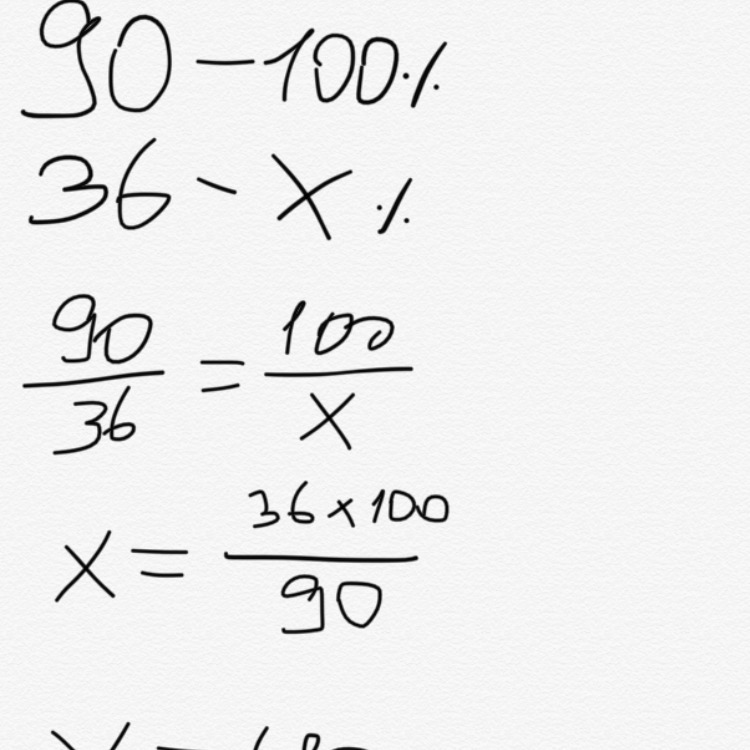 90 - 100%
36 - x%
90/36 = 100/x
x = 36 x 100/90